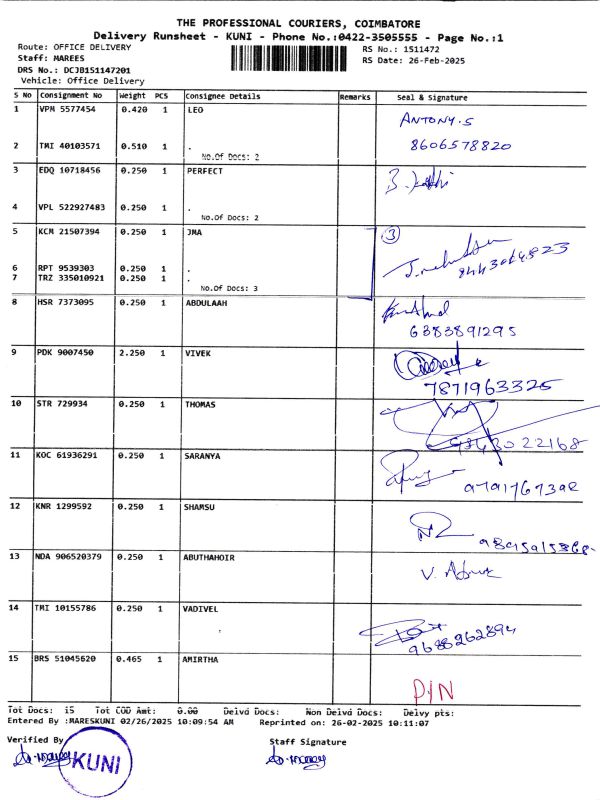 THE PROFESSIONAL COURIERS, COIMBATORE
Delivery Runsheet - KUNI - Phone No.:0422-3505555 - Page No.:1
Route: OFFICE DELIVERY RS No.: 1511472
Staff: MAREES RS Date: 26-Feb-2025
DRS No.: DCJB151147201
Vehicle: Office Delivery
S No Consignment No Weight PCS Consignee Details Remarks Seal & Signature
1 VPM 5577454 0.420 1 LEO ANTONY.S
2 TMI 40103571 0.510 1 . 8606578820
No.Of Docs: 2
3 EDQ 10718456 0.250 1 PERFECT
4 VPL 522927483 0.250 1 .
No.Of Docs: 2
5 KCM 21507394 0.250 1 JMA 3
6 RPT 9539303 0.250 1 .
7 TRZ 335010921 0.250 1 .
No.Of Docs: 3
8 HSR 7373095 0.250 1 ABDULAAH
6383891295
9 PDK 9007450 2.250 1 VIVEK
7871963325
10 STR 729934 0.250 1 THOMAS
11 KOC 61936291 0.250 1 SARANYA
9791767392
12 KNR 1299592 0.250 1 SHAMSU
13 NDA 906520379 0.250 1 ABUTHAHOIR
14 TMI 10155786 0.250 1 VADIVEL
9688262894
15 BRS 51045620 0.465 1 AMIRTHA
P/N
Tot Docs: 15 Tot COD Amt: 0.00 Delvd Docs: Non Delvd Docs: Delvy pts:
Entered By :MARESKUNI 02/26/2025 10:09:54 AM Reprinted on: 26-02-2025 10:11:07
Verified By Staff Signature
KUNI